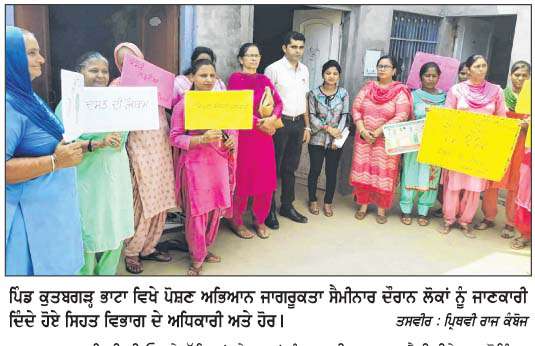 ਦਸਤ ਦੀ ਰੋਕਥਾਮ
ਪਿੰਡ ਕੁਤਬਗੜ੍ਹ ਭਾਟਾ ਵਿਖੇ ਪੋਸ਼ਣ ਅਭਿਆਨ ਜਾਗਰੂਕਤਾ ਸੈਮੀਨਾਰ ਦੌਰਾਨ ਲੋਕਾਂ ਨੂੰ ਜਾਣਕਾਰੀ
ਦਿੰਦੇ ਹੋਏ ਸਿਹਤ ਵਿਭਾਗ ਦੇ ਅਧਿਕਾਰੀ ਅਤੇ ਹੋਰ। ਤਸਵੀਰ : ਪ੍ਰਿਥਵੀ ਰਾਜ ਕੰਬੋਜ